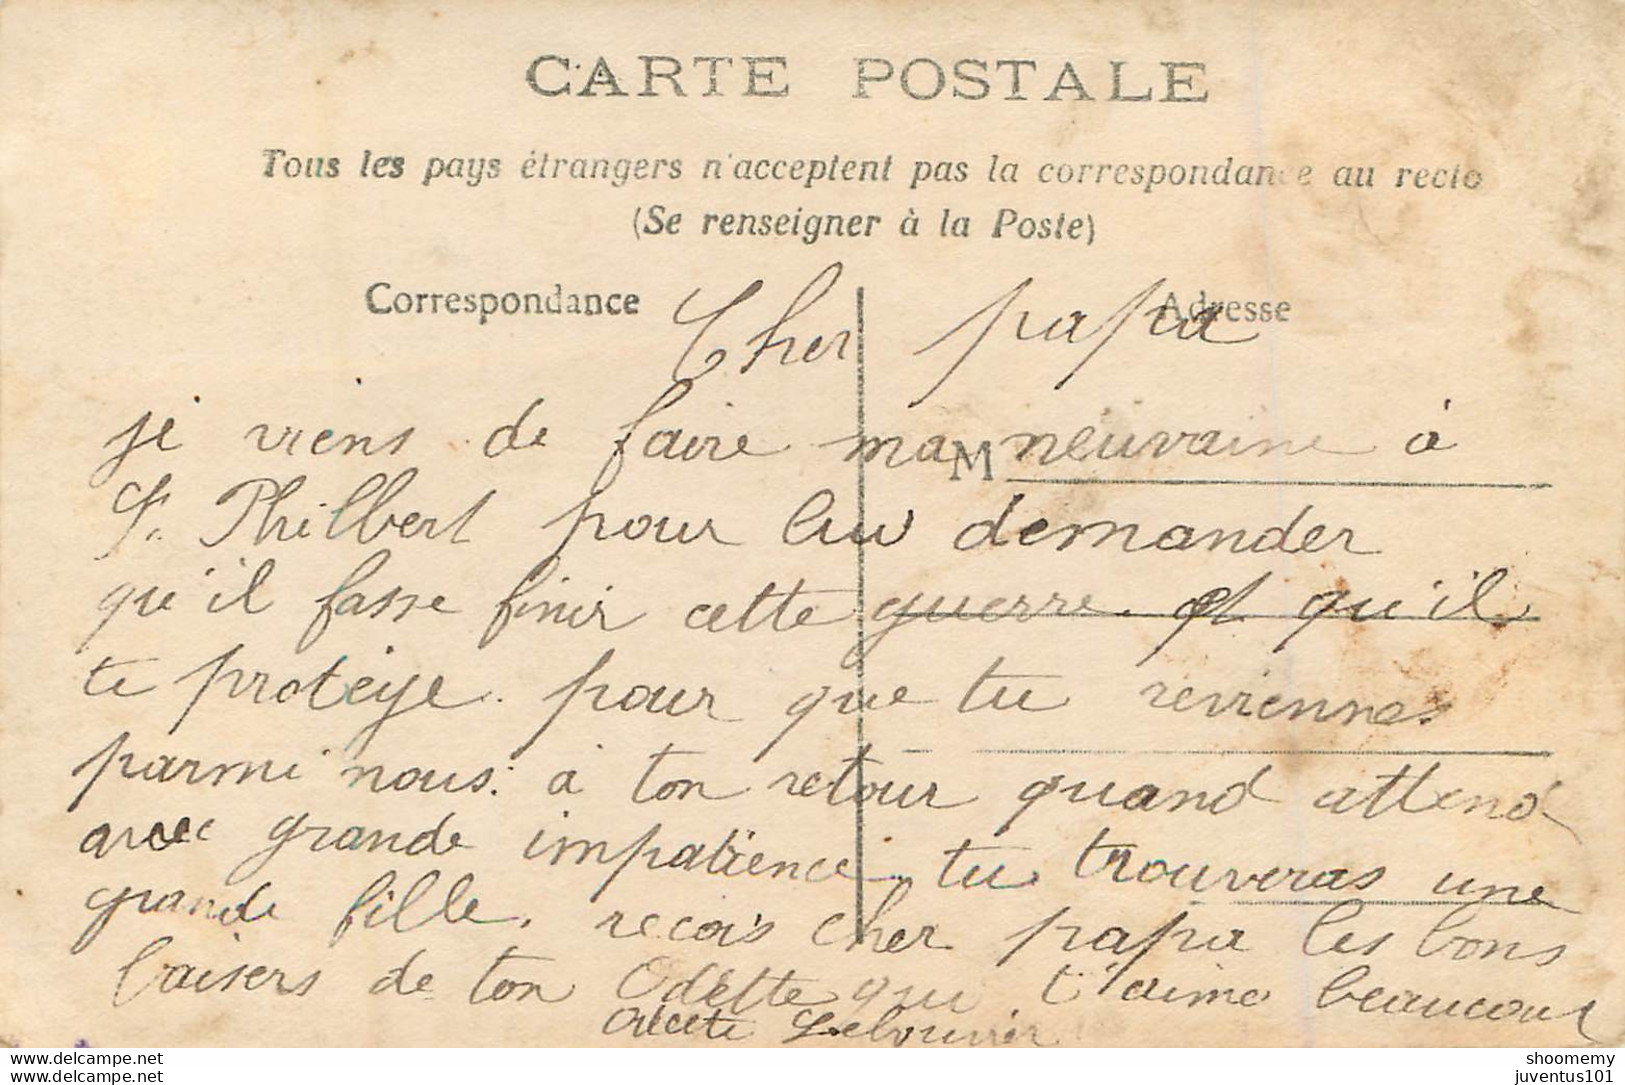 CARTE POSTALE
Tous les pays étrangers n'acceptent pas la correspondance au recto
(Se renseigner à la Poste)
Correspondance
Adresse
M
Cher papa
je viens de faire ma neuvaine à
St. Philbert pour lui demander
qu'il fasse finir cette guerre. et qu'il
te protége. pour que tu reviennes
parmi nous. à ton retour quand attend
avec grande impatience. tu trouveras une
grande fille. recois cher papa les bons
baisers de ton Odette qui t'aime beaucoup
Odette
delcampe.net
delcampe.net
shoomemy
juventus101